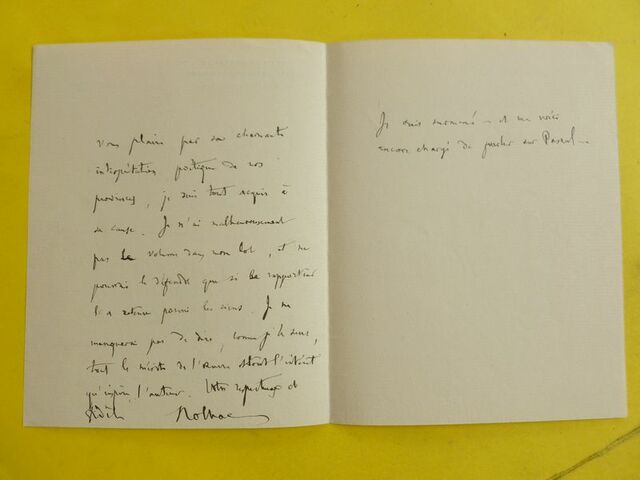 vous plaire par sa charmante
interprétation poétique de nos
provinces, je suis tout acquis à
sa cause. Je n'ai malheureusement
pas le volume dans mon lot, et ne
pourrai le défendre que si le rapporteur
l'a retenu parmi les siens. Je ne
manquerai pas de dire, comme je le sens,
tout le mérite de l'œuvre et tout l'intérêt
qu'inspire l'auteur. Votre respectueux et
fidèle Nolhac
Je suis surmené — et me voici
encore chargé de parler sur Pascal —